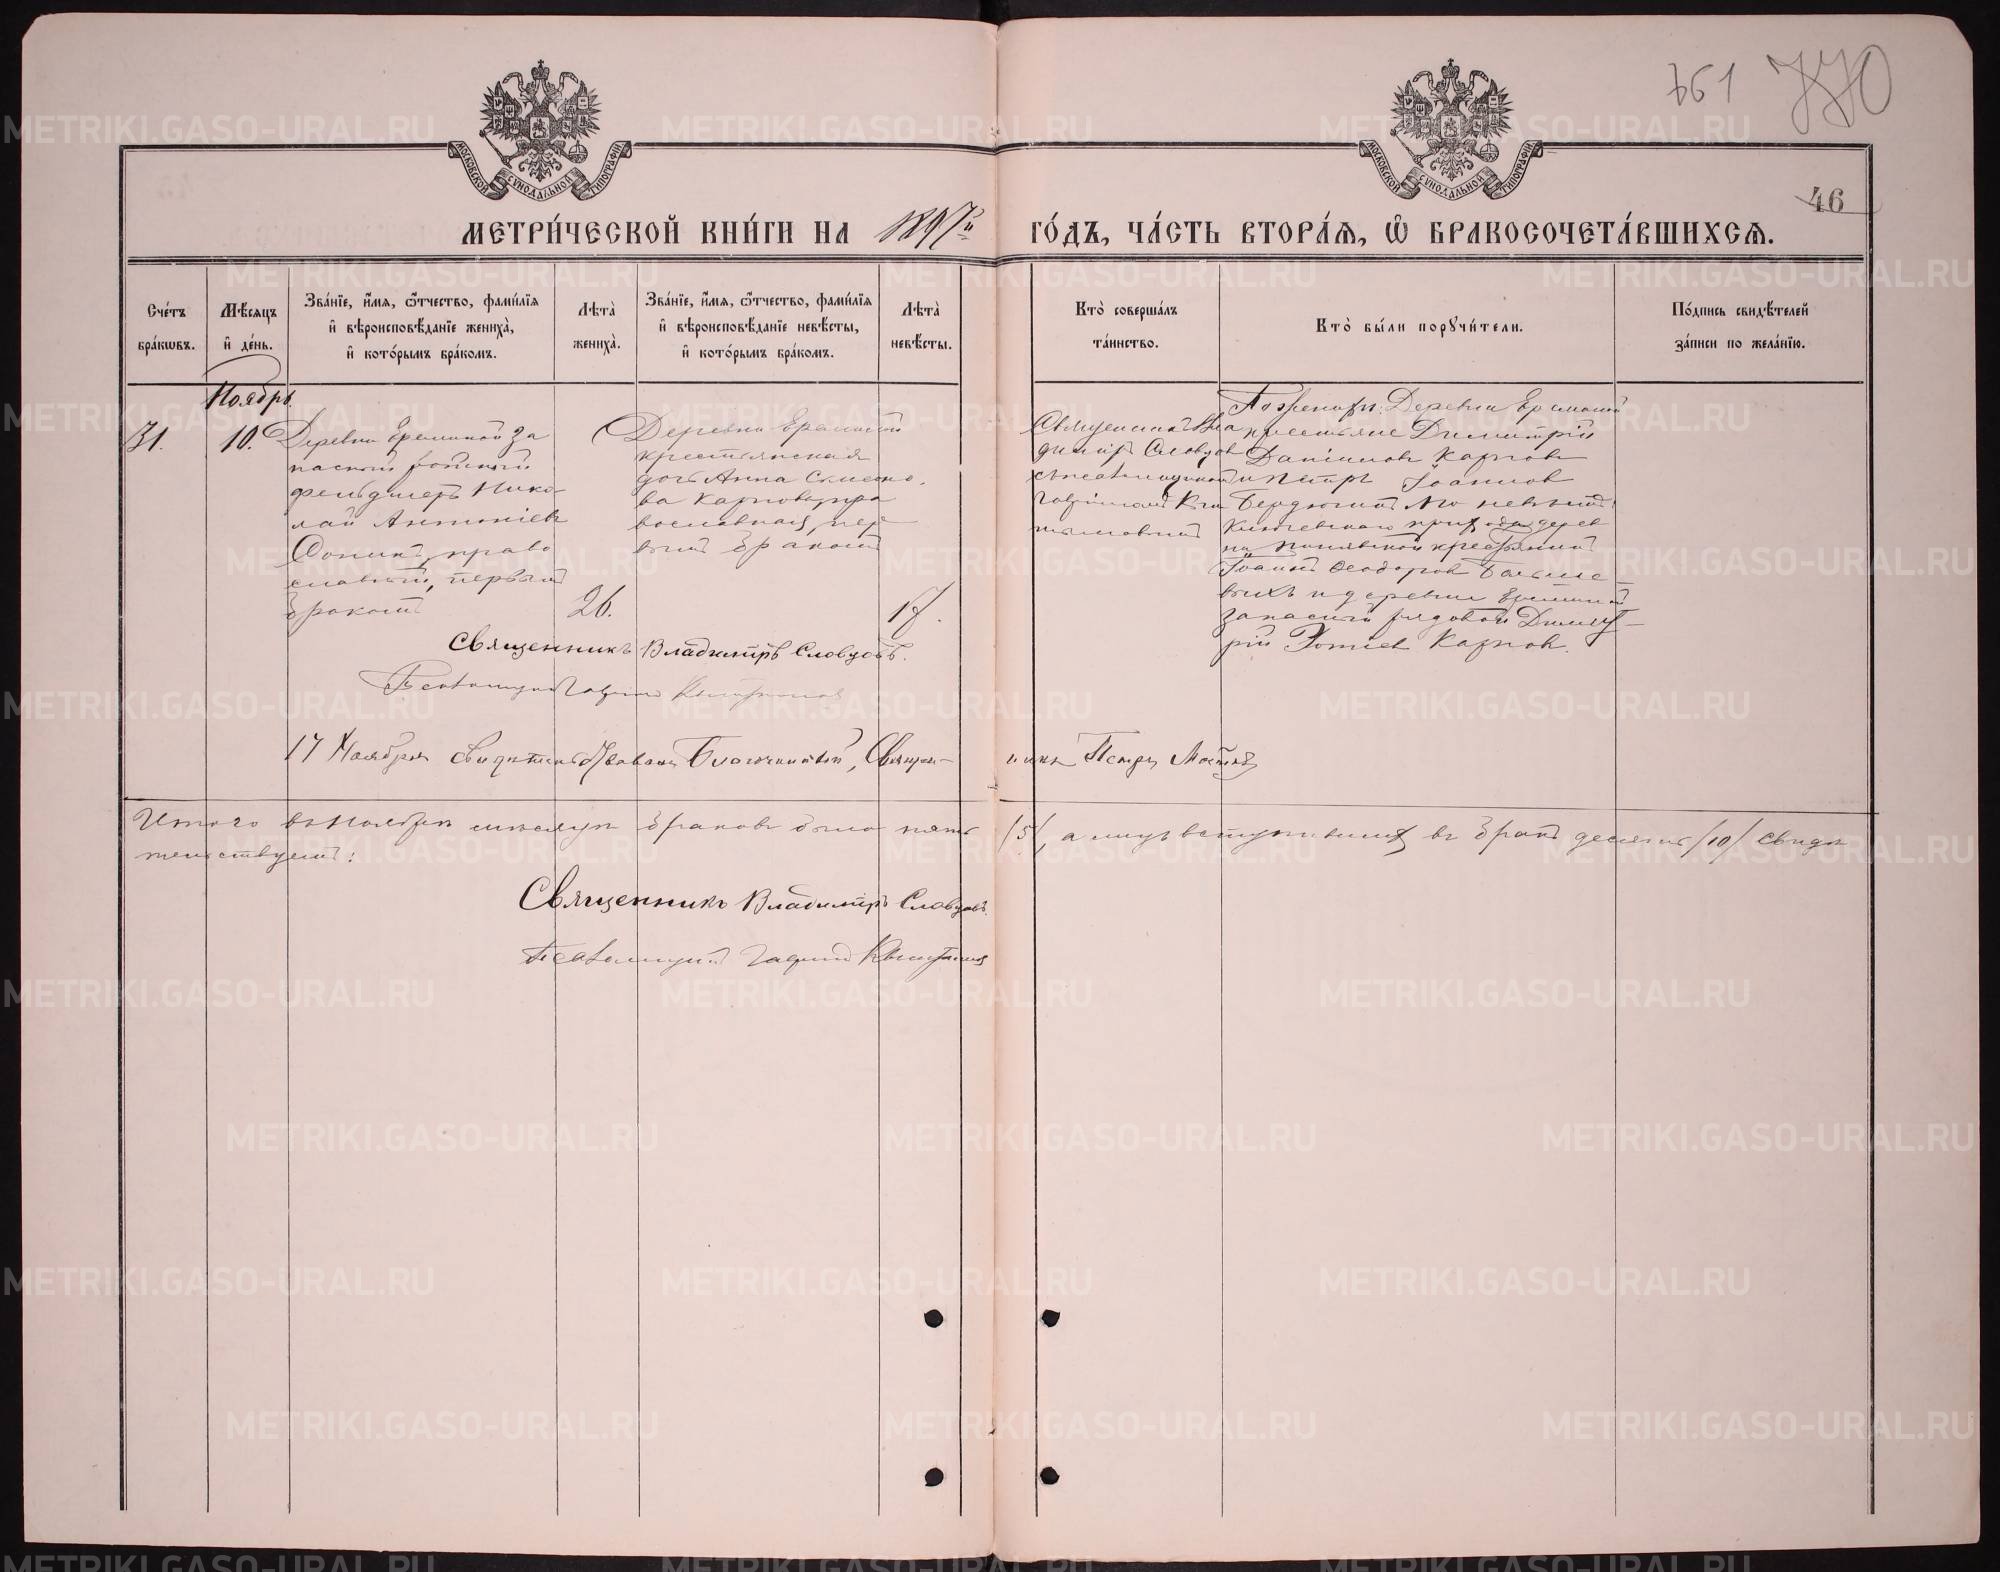 761 770
МОСКОВСКОЙ СУНОДАЛЬНОЙ ТИПОГРАФІИ
МОСКОВСКОЙ СУНОДАЛЬНОЙ ТИПОГРАФІИ
46
МЕТРИ́ЧЕСКОЙ КНИ́ГИ НА 1897й ГО́ДЪ, ЧА́СТЬ ВТОРА́Я, Ѡ БРАКОСОЧЕТА́ВШИХСѦ.
Сче́тъ бра́кѡвъ.
Мѣ́сяцъ и҆ де́нь.
Зва́нїе, и҆́мѧ, ѻ҆́тчество, фами́лїѧ и҆ вѣроисповѣ́данїе жениха̀, и҆ кото́рымъ бра́комъ.
Лѣ́та̀ жениха̀.
Зва́нїе, и҆́мѧ, ѻ҆́тчество, фами́лїѧ и҆ вѣроисповѣ́данїе невѣ́сты, и҆ кото́рымъ бра́комъ.
Лѣ́та̀ невѣ́сты.
Кто̀ соверша́лъ та́инство.
Кто̀ бы́ли порꙋчи́тели.
По́дпись свидѣ́телей за́писи по жела́нїю.
Ноябрь
31.
10.
Деревни Ереминой за
пасный ротный
фельдшеръ Нико-
лай Антоніевъ
православный, первымъ
бракомъ
26.
Деревни Ереминой
крестьянская
дочь Анна Симеоно-
ва Карпова, пра
вославная, пер
вымъ бракомъ
17.
Священникъ Вла
димиръ Словцовъ
съ псаломщикомъ
Гавріиломъ
По женихѣ: Деревни Ереминой
крестьяне Димитрій
Даніиловъ Карповъ
и Петръ Іоанновъ
По невѣстѣ:
Ключевскаго прихода дерев
ни крестьянинъ
Іоаннъ Ѳеодоровъ Больше-
выхъ и деревни Ереминой
запасный рядовой Димит-
рій Карпов.
Священникъ Владимиръ Словцовъ.
Псаломщикъ Гавріилъ
17 Ноября свидѣтельствовалъ Благочинный, Священникъ Петръ
Итого въ Ноябрѣ мѣсяцѣ браковъ было пять /5/, а лицъ вступившихъ въ бракъ десять /10/ свидѣ
тельствуемъ:
Священникъ Владимиръ Словцовъ.
Псаломщикъ Гавріилъ
METRIKI.GASO-URAL.RU